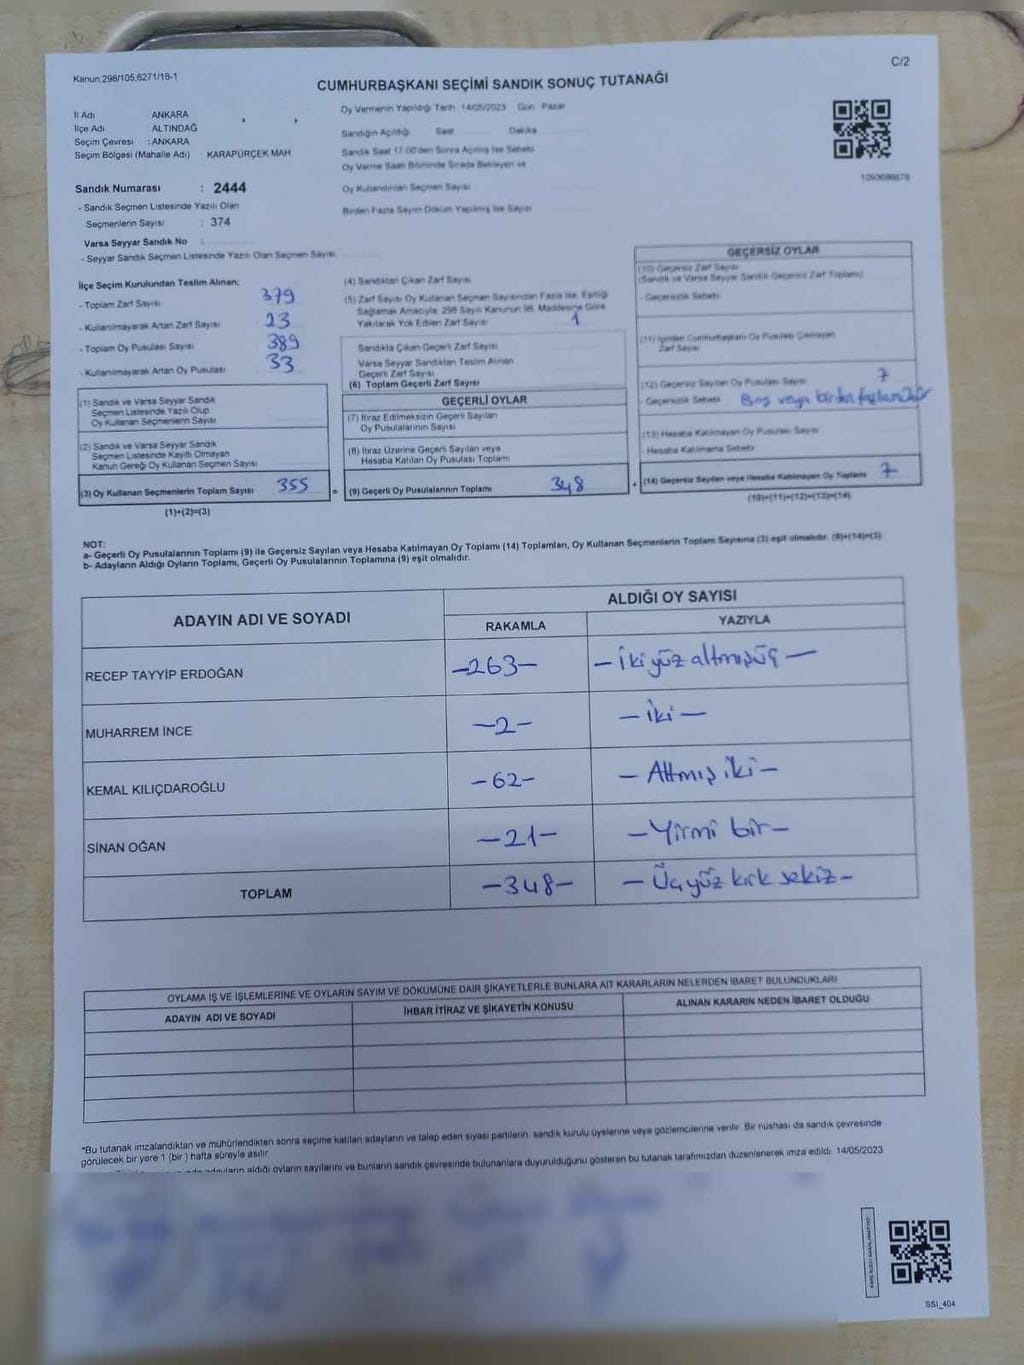 Kanun 298/105,6271/18-1
C/2
CUMHURBAŞKANI SEÇİMİ SANDIK SONUÇ TUTANAĞI
İl Adı ANKARA
İlçe Adı ALTINDAĞ
Seçim Çevresi : ANKARA
Seçim Bölgesi (Mahalle Adı) KARAPÜRÇEK MAH
Oy Vermenin Yapıldığı Tarih 14/05/2023 Gün Pazar
Sandığın Açıldığı Saat Dakika
Sandık Saat 17.00'den Sonra Açılmış İse Sebebi
Oy Verme Saati Bitiminde Sırada Bekleyen ve
Oy Kullandırılan Seçmen Sayısı
Birden Fazla Sayım Döküm Yapılmış İse Sayısı
1093686678
Sandık Numarası : 2444
- Sandık Seçmen Listesinde Yazılı Olan
Seçmenlerin Sayısı : 374
Varsa Seyyar Sandık No :
- Seyyar Sandık Seçmen Listesinde Yazılı Olan Seçmen Sayısı
İlçe Seçim Kurulundan Teslim Alınan;
- Toplam Zarf Sayısı 379
- Kullanılmayarak Artan Zarf Sayısı 23
- Toplam Oy Pusulası Sayısı 389
- Kullanılmayarak Artan Oy Pusulası 33
(1) Sandık ve Varsa Seyyar Sandık
Seçmen Listesinde Yazılı Olup
Oy Kullanan Seçmenlerin Sayısı
(2) Sandık ve Varsa Seyyar Sandık
Seçmen Listesinde Kayıtlı Olmayan
Kanun Gereği Oy Kullanan Seçmen Sayısı
(3) Oy Kullanan Seçmenlerin Toplam Sayısı 355
(1)+(2)=(3)
(4) Sandıktan Çıkan Zarf Sayısı
(5) Zarf Sayısı Oy Kullanan Seçmen Sayısından Fazla İse, Eşitliği
Sağlamak Amacıyla, 298 Sayılı Kanunun 98. Maddesine Göre
Yakılarak Yok Edilen Zarf Sayısı 1
Sandıkta Çıkan Geçerli Zarf Sayısı
Varsa Seyyar Sandıktan Teslim Alınan
Geçerli Zarf Sayısı
(6) Toplam Geçerli Zarf Sayısı
GEÇERLİ OYLAR
(7) İtiraz Edilmeksizin Geçerli Sayılan
Oy Pusulalarının Sayısı
(8) İtiraz Üzerine Geçerli Sayılan veya
Hesaba Katılan Oy Pusulası Toplamı
= (9) Geçerli Oy Pusulalarının Toplamı 348
GEÇERSİZ OYLAR
(10) Geçersiz Zarf Sayısı
(Sandık ve Varsa Seyyar Sandık Geçersiz Zarf Toplamı)
- Geçersizlik Sebebi
(11) İçinden Cumhurbaşkanı Oy Pusulası Çıkmayan
Zarf Sayısı
(12) Geçersiz Sayılan Oy Pusulası Sayısı 7
- Geçersizlik Sebebi Boş veya birden fazla
(13) Hesaba Katılmayan Oy Pusulası Sayısı
- Hesaba Katılmama Sebebi
+ (14) Geçersiz Sayılan veya Hesaba Katılmayan Oy Toplamı 7
(10)+(11)+(12)+(13)=(14)
NOT:
a- Geçerli Oy Pusulalarının Toplamı (9) ile Geçersiz Sayılan veya Hesaba Katılmayan Oy Toplamı (14) Toplamları, Oy Kullanan Seçmenlerin Toplam Sayısına (3) eşit olmalıdır. (9)+(14)=(3)
b- Adayların Aldığı Oyların Toplamı, Geçerli Oy Pusulalarının Toplamına (9) eşit olmalıdır.
ADAYIN ADI VE SOYADI
ALDIĞI OY SAYISI
RAKAMLA YAZIYLA
RECEP TAYYİP ERDOĞAN -263- -İki yüz altmışüç-
MUHARREM İNCE -2- -iki-
KEMAL KILIÇDAROĞLU -62- -Altmış iki-
SİNAN OĞAN -21- -Yirmi bir-
TOPLAM -348- -Üçyüz kırk sekiz-
OYLAMA İŞ VE İŞLEMLERİNE VE OYLARIN SAYIM VE DÖKÜMÜNE DAİR ŞİKAYETLERLE BUNLARA AİT KARARLARIN NELERDEN İBARET BULUNDUKLARI
ADAYIN ADI VE SOYADI İHBAR İTİRAZ VE ŞİKAYETİN KONUSU ALINAN KARARIN NEDEN İBARET OLDUĞU
*Bu tutanak imzalandıktan ve mühürlendikten sonra seçime katılan adayların ve talep eden siyasi partilerin sandık kurulu üyelerine veya gözlemcilerine verilir. Bir nüshası da sandık çevresinde
görülecek bir yere 1 (bir) hafta süreyle asılır.
adayların aldığı oyların sayılarını ve bunların sandık çevresinde bulunanlara duyurulduğunu gösteren bu tutanak tarafımızdan düzenlenerek imza edildi. 14/05/2023
SSI_404